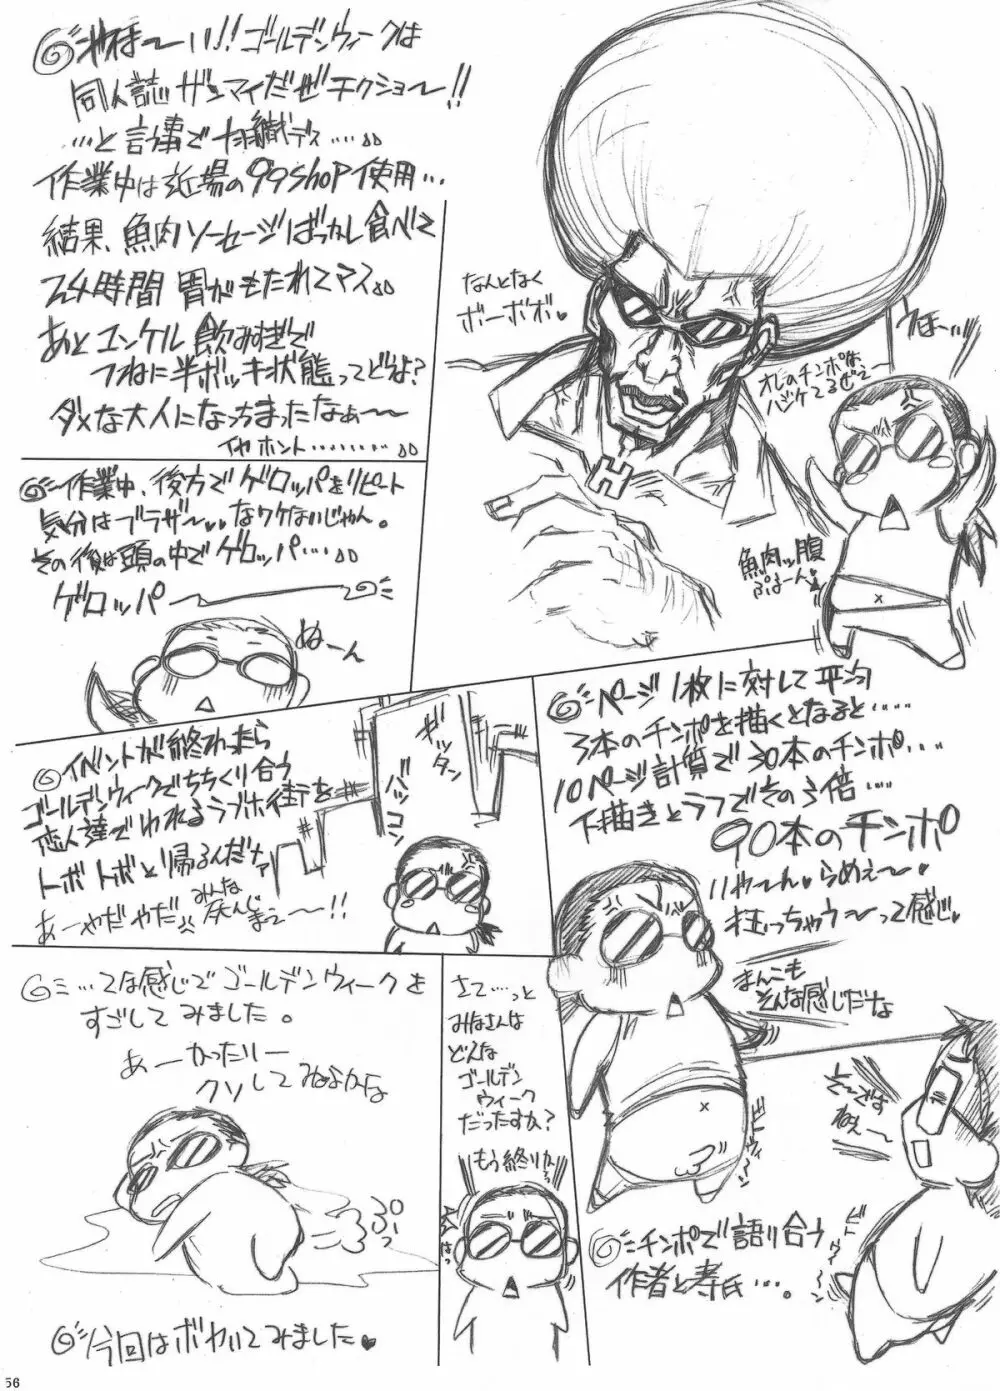 やほ〜い!!ゴールデンウィークは
同人誌ザンマイだぜチクショ〜!!
…と言う事で
作業中は近場の99shop使用…
結果、魚肉ソーセージばっかし食べて
24時間 胃がもたれてマス。。
あとユンケル飲みすぎで
つねに半ボッキ状態ってどうよ?
ダメな大人になっちまったなぁ〜〜
イヤホント………
なんとなく
ボーボボ♥
うほー…ッ
オレのチンポは
ハジケてるぜぇ〜
魚肉ッ腹
ぷよーん♥
作業中、後方でゲロッパをリピート
気分はブラザ〜♥♥なワケないじゃん。
その後は頭の中でゲロッパ…
ゲロッパ〜
ぬーん
イベントが終わったら
ゴールデンウィークでちちくり合う
恋人達であふれるラブホ街を
トボトボと帰るんだナァ
あーやだやだ
みんな
灰んじまえ〜〜!!
ギッタン
バッコン
ページ1枚に対して平均
3本のチンポを描くとなると……
10ページ計算で30本のチンポ…
下描きとラフでその3倍……
90本のチンポ
いや〜ん♥らめぇ〜♥
狂っちゃう〜って感じ♥
まんこも
そんな感じだな
…てな感じでゴールデンウィークを
すごしてみました。
あーかったりー
クソしてねよかな
ぷぅーっ
今回はボヤいてみました♥
さて…っと
みなさんは
どんな
ゴールデン
ウィーク
だったすか?
もう終りかっ
そ〜ですねぇ〜
チンポで語り合う
作者と寿氏…。
56